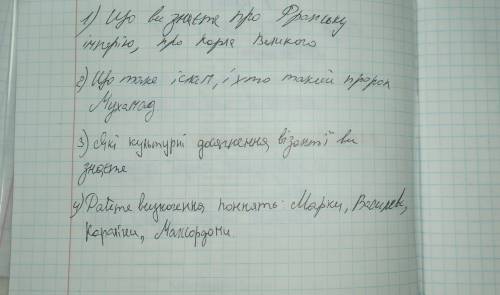 1) Що ви знаєте про Франську
імперію, про Карла Великого
2) Що таке іслам, і хто такий пророк
Мухамад
3) Які культурні досягнення візантії ви
знаєте
4) Дайте визначення понять: Марки, Василевс,
Кораніки, Мажордоми.